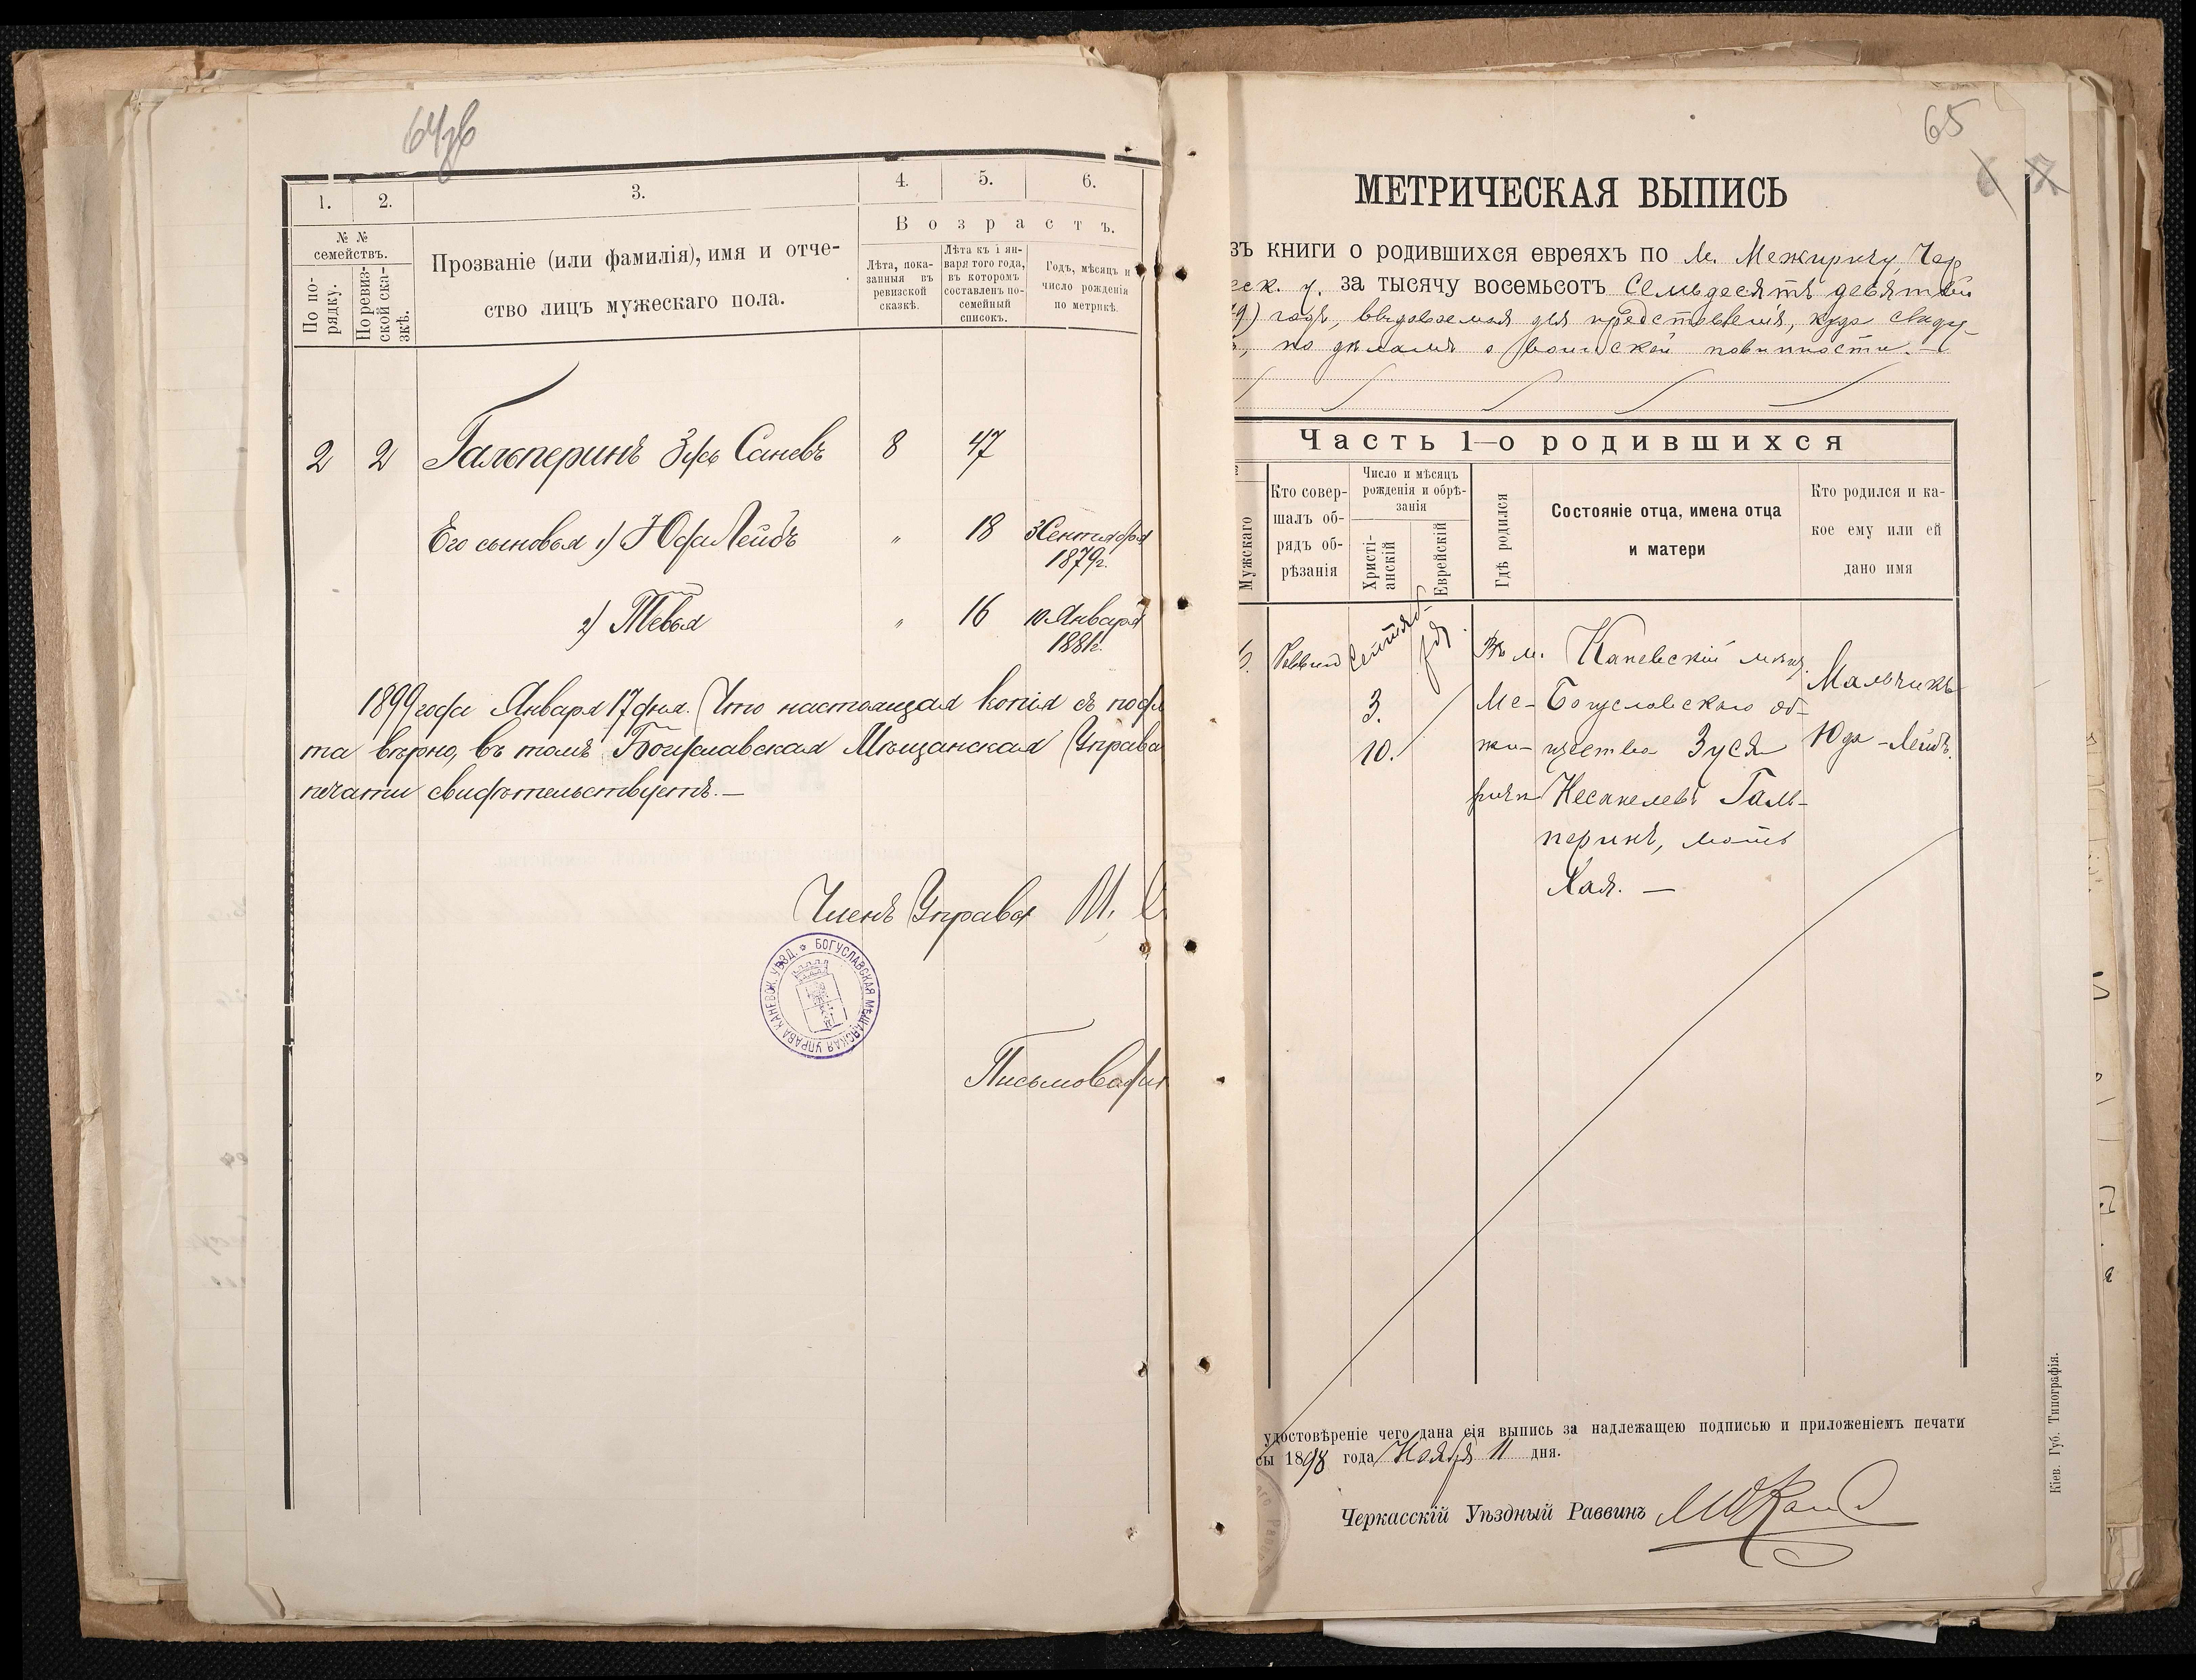 64зв
1.
2.
3.
4.
5.
6.
№ №
семействъ.
По по-
рядку.
По ревиз-
ской ска-
зкѣ.
Прозваніе (или фамилія), имя и отче-
ство лицъ мужескаго пола.
Возрастъ.
Лѣта, пока-
занныя въ
ревизской
сказкѣ.
Лѣта къ 1 ян-
варя того года,
въ которомъ
составленъ по-
семейный
списокъ.
Годъ, мѣсяцъ и
число рожденія
по метрикѣ.
2 2 Гальперинъ Зусь 8 47
Его сыновья 1) Юда Лейбъ " 18 3 Сентября
1879 г.
2) Тевья " 16 10 Января
1881 г.
1899 года Января 17 дня. Что настоящая копія съ подл
та вѣрно, въ томъ Богуславская Мѣщанская Управа
печати свидѣтельствуетъ. —
Членъ Управы М.
БОГУСЛАВСКАЯ МѢЩАНСКАЯ УПРАВА КАНЕВСК. УѢЗД.
Письмоводи
65
МЕТРИЧЕСКАЯ ВЫПИСЬ
зъ книги о родившихся евреяхъ по м. Межиричу, Чер
сск. у. за тысячу восемьсотъ семьдесятъ девятый
79) годъ, выдаваемая для представленія, куда слѣду-
, по дѣламъ о воинской повинности. —
Часть 1–о родившихся
Мужскаго
Кто совер-
шалъ об-
рядъ об-
рѣзанія
Число и мѣсяцъ
рожденія и обрѣ-
занія
Христі-
анскій
Еврейскій
Гдѣ родился
Состояніе отца, имена отца
и матери
Кто родился и ка-
кое ему или ей
дано имя
Раввинъ
Сентяб-
ря
3.
10.
Въ м.
Ме-
жи-
ричи
Каневскій мѣщ.
Богуславскаго об-
щества Зуся
Несанелевъ Галь-
перинъ, мать
Хая. —
Мальчикъ
Юда-Лейбъ.
удостовѣреніе чего дана сія выпись за надлежащею подписью и приложеніемъ печати
сы 1898 года Ноября 11 дня.
Черкасскій Уѣздный Раввинъ
Кіев. Губ. Типографія.